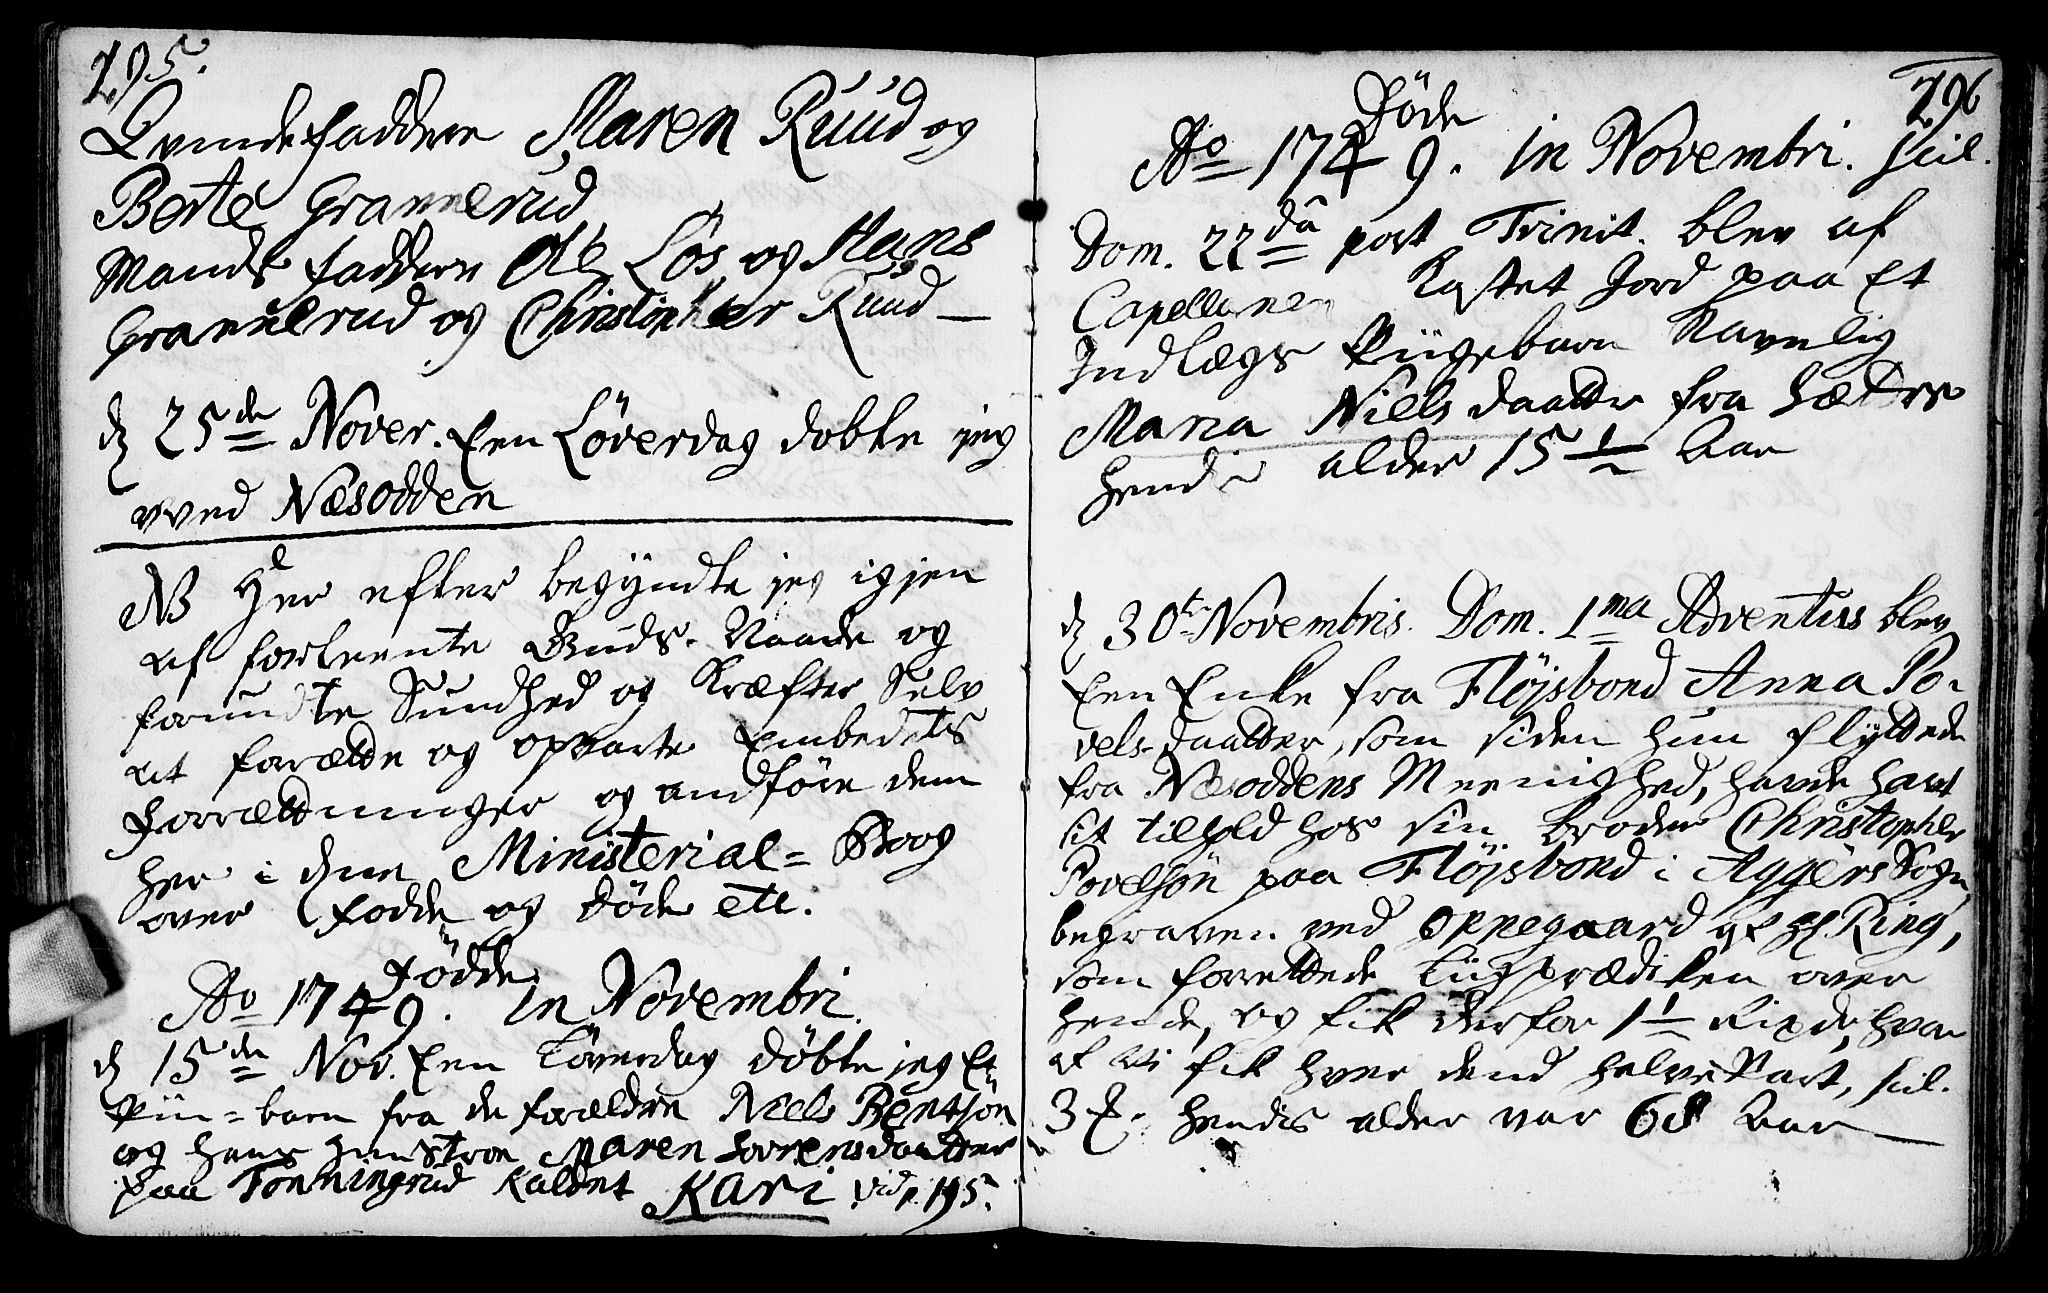 295.
Qvindefaddere Maren Ruud og
Berte Gravelrud
Mands faddere Ole Løs og Hans
Gravelrud og Christopher Ruud —
d 25de Nover. Een Løverdag dobte jeg
vved Næsodden
NB Her efter begyndte jeg igjen
af forleente Guds Naade og
forundte Sundhed og Kræfter Selv
at forætte og opvarte Embedets
Forrættninger og andføre dem
her i denne Ministerial= Boog
over Fødde og Døde etc.
Fødde
Ao 1749. in Novembri.
d 15de Nov. Een Løverdag døbte jeg Et
Piige=barn fra de foræeldre Niels Bentsøn
og hans Hustroe Maren Lorrensdaatter
paa Tonningrud kaldet Kari vid. p. 195.
296
Døde
Ao 1749. in Novembri. scil.
Dom. 22da post Trinit. blev af
Capellanen Kastet Jord paa Et
Indlægs Piigebarn Navnlig
Maria Niels daatter fra
hendis alder 15 1/2 Aar
d 30te Novembris. Dom. 1ma Adventus blev
Een Enke fra Fløjsbond Anna Po-
vels-daatter, som siden hun flyttede
fra Næsoddens Meenighed, havde havt
sit tilhold hos sin broder Christopher
Povelsøn paa Fløjsbond i Aggers Sogn,
begraven ved Oppegaard af Hr Ring,
som forrettede Liigprædiken over
hende, og fik derfor 1 1/2 Rixdr, hvor
af vi fik hver dend halve Part, scil.
3 hendis alder var 68 Aar —